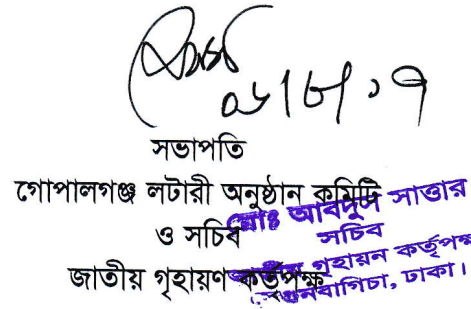 সভাপতি
গোপালগঞ্জ লটারী অনুষ্ঠান কমিটি
ও সচিব
জাতীয় গৃহায়ণ কর্তৃপক্ষ
মোঃ আবদুস সাত্তার
সচিব
গৃহায়ন কর্তৃপক্ষ
সেগুনবাগিচা, ঢাকা।